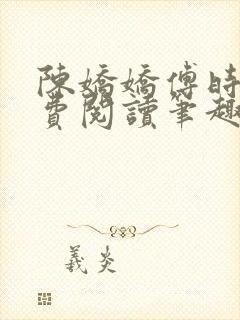 陳嬌嬌傅時
費閱讀筆趣
義炎